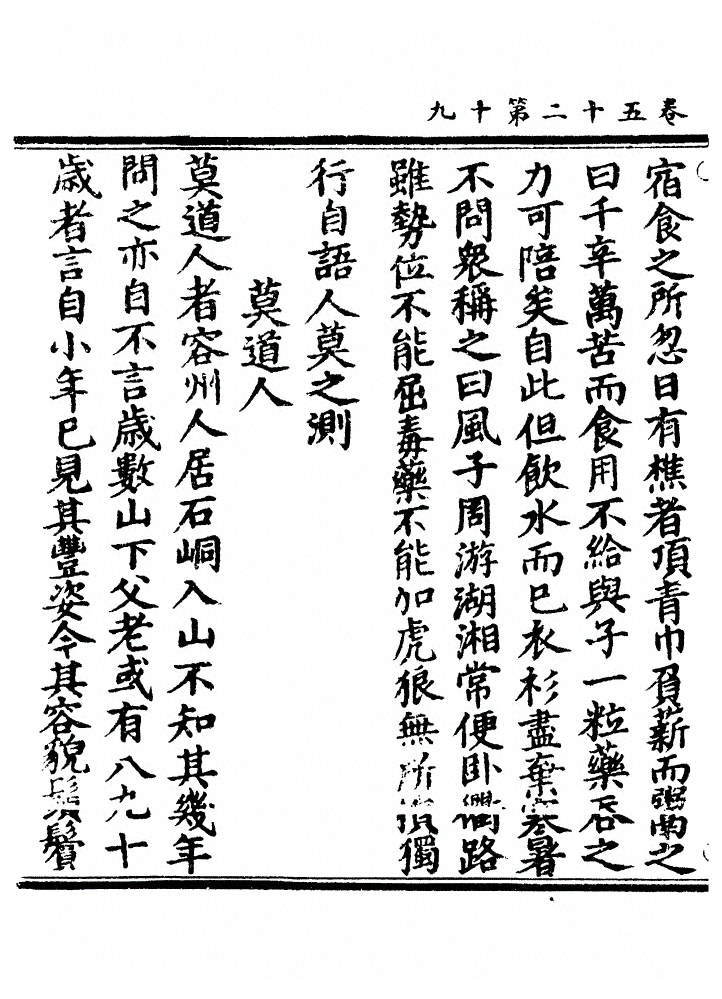 卷五十二第十九
宿食之所忽日有樵者頂青巾負薪而粥蘭之
曰千辛萬苦而食用不給與子一粒藥吞之
力可陪矣自此但飲水而已衣衫盡棄寒暑
不問衆稱之曰風子周游湖湘常便臥衢路
雖勢位不能屈毒藥不能加虎狼無所懼獨
行自語人莫之測
莫道人
莫道人者容州人居石峒入山不知其幾年
問之亦自不言歲數山下父老或有八九十
歲者言自小年已見其豐姿令其容貌鬚鬢